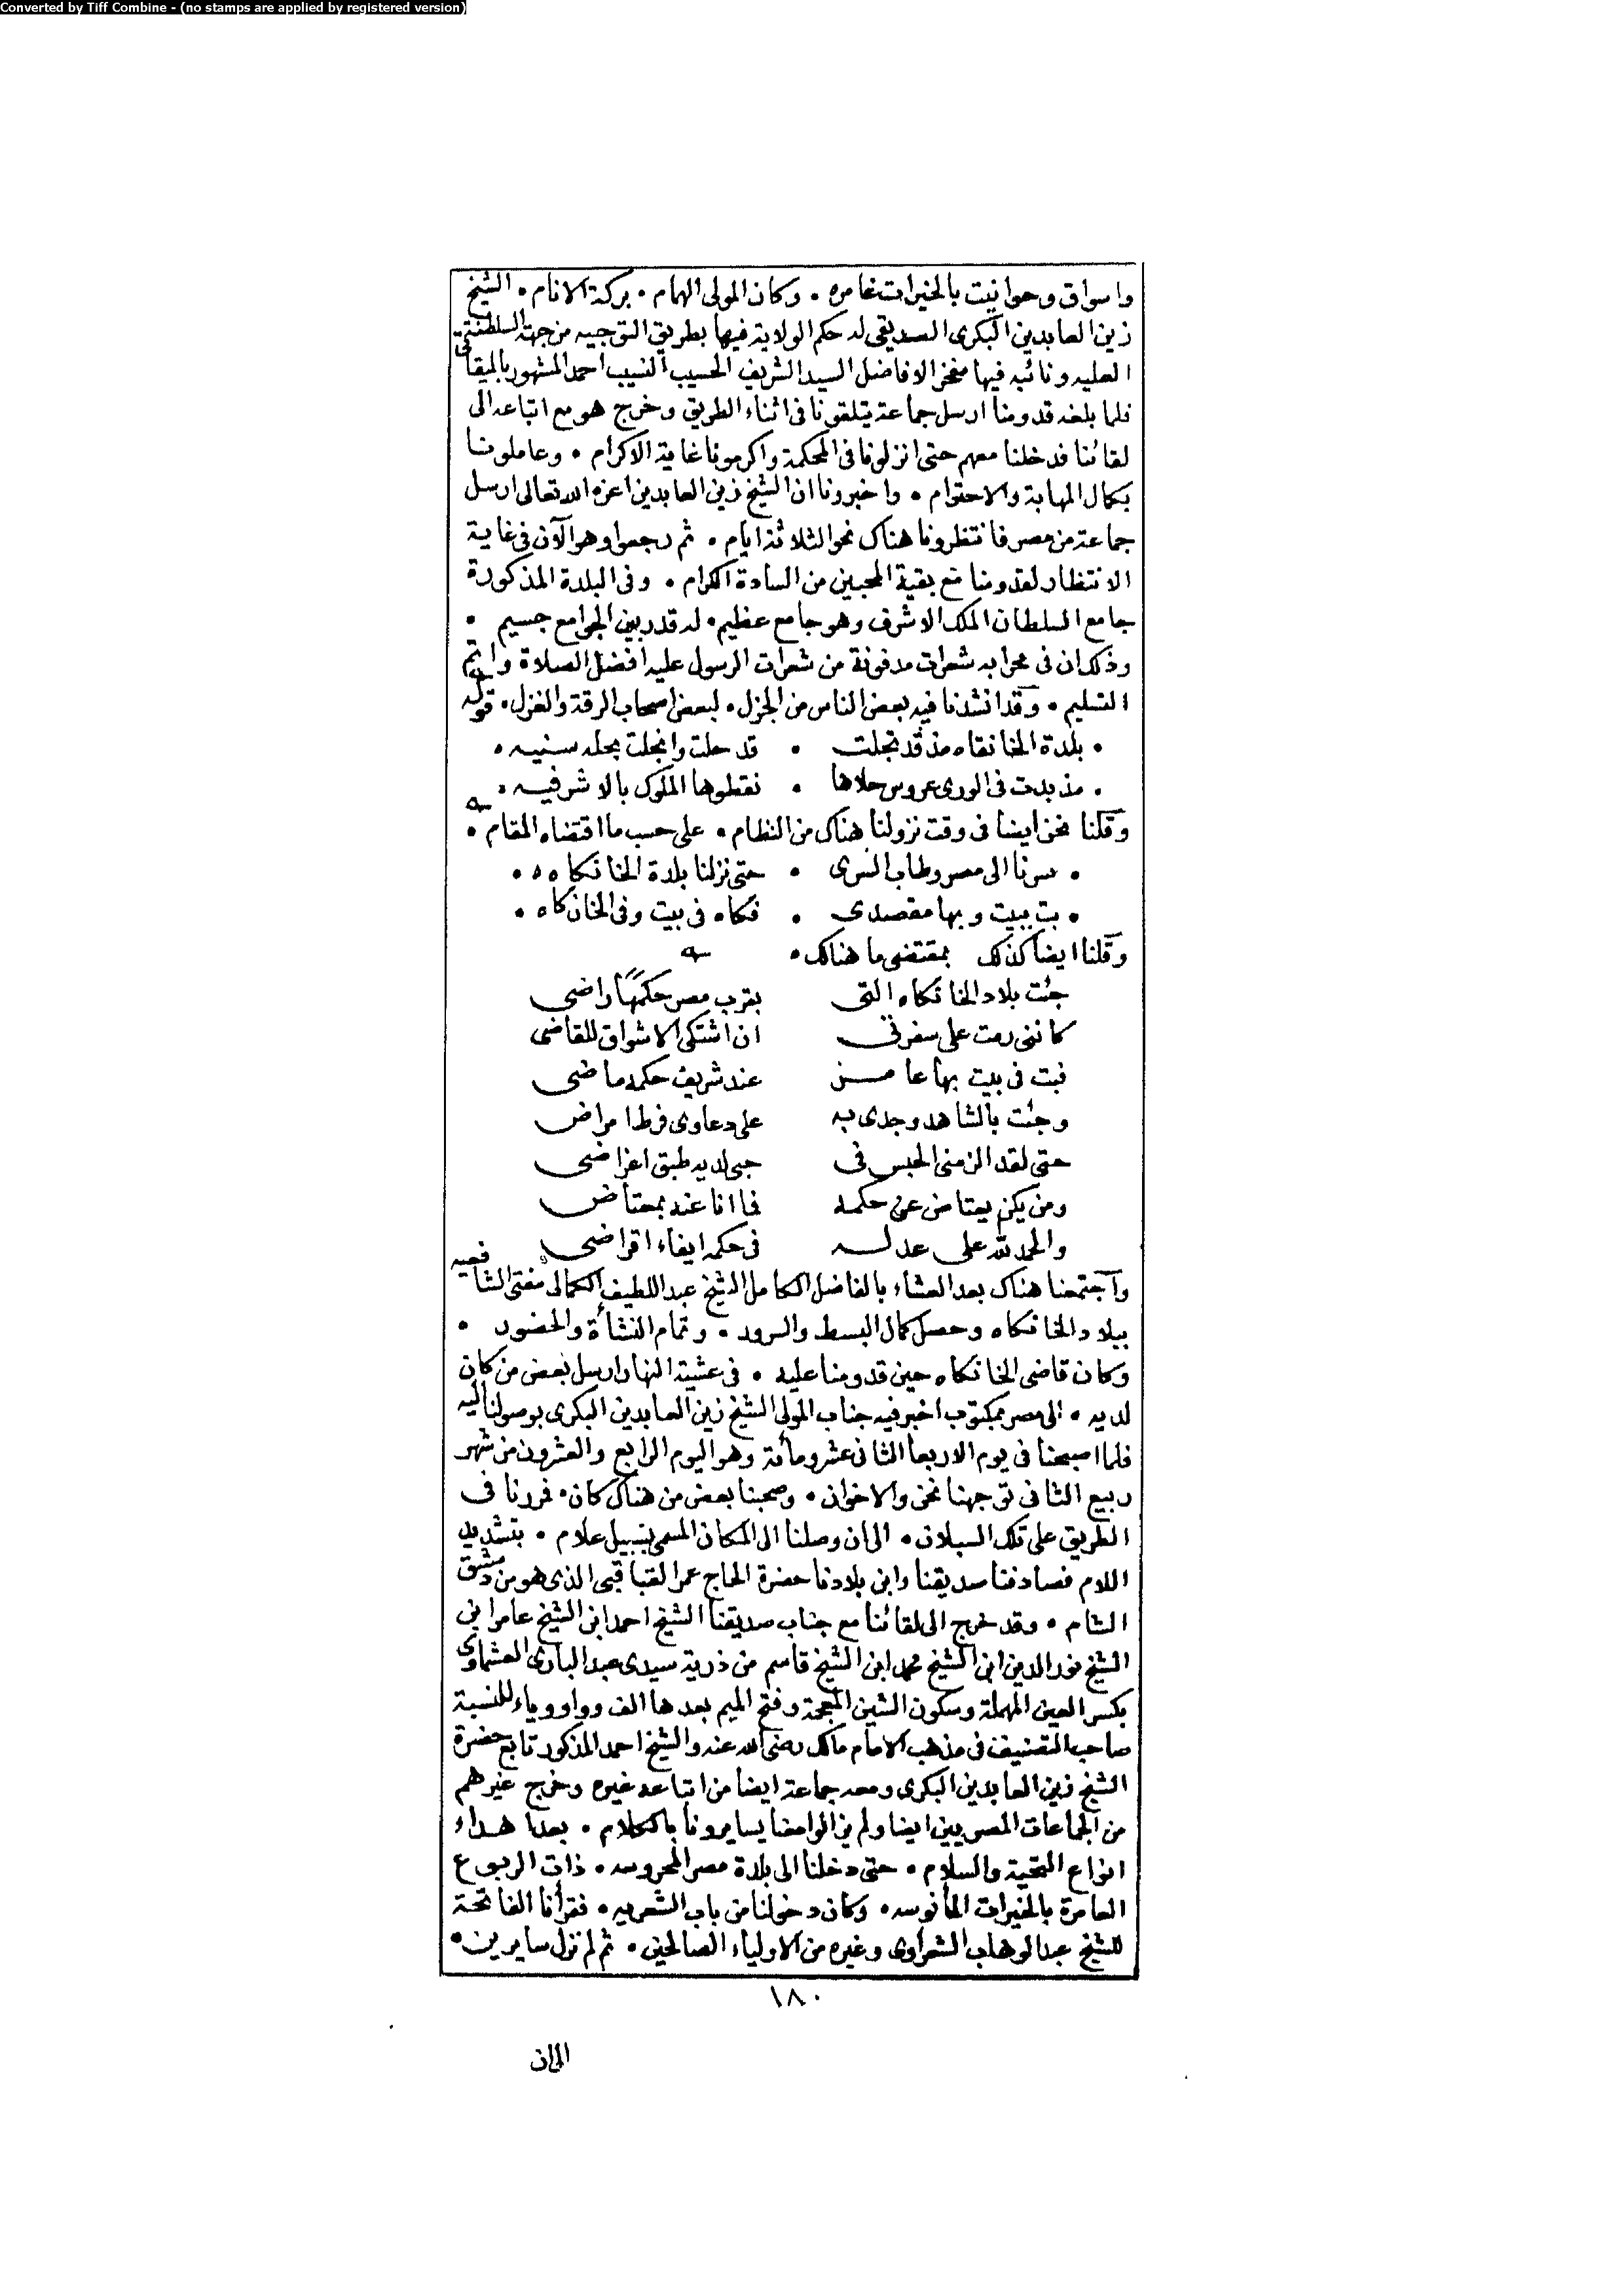 Converted by Tiff Combine - (no stamps are applied by registered version)
واسواق وحوانيت بالخيرات غامره ٠ وكان المولى الهمام ٠ بركة الانام ٠ الشيخ
زين العابدين البكرى الصديقى له حكم الولاية فيها بطريق التوجيه من جهة السلطنة
العليه ونائبه فيها مفخر الافاضل السيد الشريف الحسيب النسيب احمد المشهور بالميقاتى
فلما بلغه قدومنا ارسل جماعة يتلقونا فى اثناء الطريق وخرج هو مع اتباعه الى
لقائنا فدخلنا معهم حتى انزلونا فى المحكمة واكرمونا غاية الاكرام ٠ وعاملونا
بكمال المهابة والاحترام ٠ واخبرونا ان الشيخ زين العابدين اعزه الله تعالى ارسل
جماعة من مصر فانتظرونا هناك نحو الثلاثة ايام ٠ ثم رجعوا وهو الآن فى غاية
الانتظار لقدومنا مع بقية المحبين من السادة الكرام ٠ وفى البلدة المذكورة
جامع السلطان الملك الاشرف وهو جامع عظيم ٠ له قدر بين الجوامع جسيم ٠
وذلك ان فى محرابه شعرات مدفونة من شعرات الرسول عليه افضل الصلاة واتم
التسليم ٠ وقد انشدنا فيه بعض الناس من الجزل ٠ لبعض اصحاب الرقة والغزل ٠ قوله
٠ بلدة الخانقاه مذ قد تجلت ٠ قد حلت وانجلت بحله سنيه ٠
٠ مذ بدت فى الورى عروس حلاها ٠ نقطوها الملوك بالاشرفيه ٠
وقلنا نحن ايضا فى وقت نزولنا هناك من النظام ٠ على حسب ما اقتضاه المقام ٠
٠ سرنا الى مصر وطاب السرى ٠ حتى نزلنا بلدة الخانكاه ٠
٠ بت ببيت وبها مقصدى ٠ فكاه فى بيت وفى الخان كاه ٠
وقلنا ايضا كذلك بمقتضى ما هنالك ٠
جئت بلاد الخانكاه التى بقرب مصر حكمها راضى
كاننى رمت على سفرتى ان اشتكى الاشواق للقاضى
فبت فى بيت بها عامر عند شريف حكمه ماضى
وجئت بالشاهد وجدى به على دعاوى فرط امراض
حتى لقد الزمنى الحبس فى حبى لديه طبق اغراضى
ومن يكن يعتاض عن حكمه فما انا عنه بمعتاض
والحمد لله على عدله فى حكمه ايفاء اقراضى
واجتمعنا هناك بعد العشاء بالفاضل الكامل الشيخ عبد اللطيف الكمالى مفتى الشافعيه
ببلاد الخانكاه وحصل كمال البسط والسرور ٠ وتمام النشأة والحضور ٠
وكان قاضى الخانكاه حين قدومنا عليه ٠ فى عشية النهار ارسل بعض من كان
لديه ٠ الى مصر بمكتوب اخبر فيه جناب المولى الشيخ زين العابدين البكرى بوصولنا اليه
فلما اصبحنا فى يوم الاربعا الثانى عشر ومائة وهو اليوم الرابع والعشرون من شهر
ربيع الثانى توجهنا نحن والاخوان ٠ وصحبنا بعض من هناك كان ٠ فمررنا فى
الطريق على تلك السبلان ٠ الى ان وصلنا الى المكان المسمى بسبيل علام ٠ بتشديد
اللام فصادفنا صديقنا وابن بلادنا حضرة الحاج عمر القباقبى الذى هو من دمشق
الشام ٠ وقد خرج الى لقائنا مع جناب صديقنا الشيخ احمد ابن الشيخ عامر ابن
الشيخ نور الدين ابن الشيخ محمد ابن الشيخ قاسم من ذرية سيدى عبد البارى العشماوى
بكسر العين المهملة وسكون الشين المعجمة وفتح الميم بعدها الف وواو وياء للنسبة
صاحب التصنيف فى مذهب الامام مالك رضى الله عنه والشيخ احمد المذكور تابع حضرة
الشيخ زين العابدين البكرى ومعه جماعة ايضا من اتباعه غيره وخرج غيرهم
من الجماعات المصريين ايضا ولم يزالوا معنا يسايرونا بالكلام ٠ بعد اهداء
انواع التحية والسلام ٠ حتى دخلنا الى بلدة مصر المحروسه ٠ ذات الربوع
العامرة بالخيرات المأنوسه ٠ وكان دخولنا من باب الشعريه ٠ فقرأنا الفاتحة
للشيخ عبد الوهاب الشعراوى وغيره من الاولياء الصالحين ٠ ثم لم نزل سايرين ٠
١٨٠
الى ان